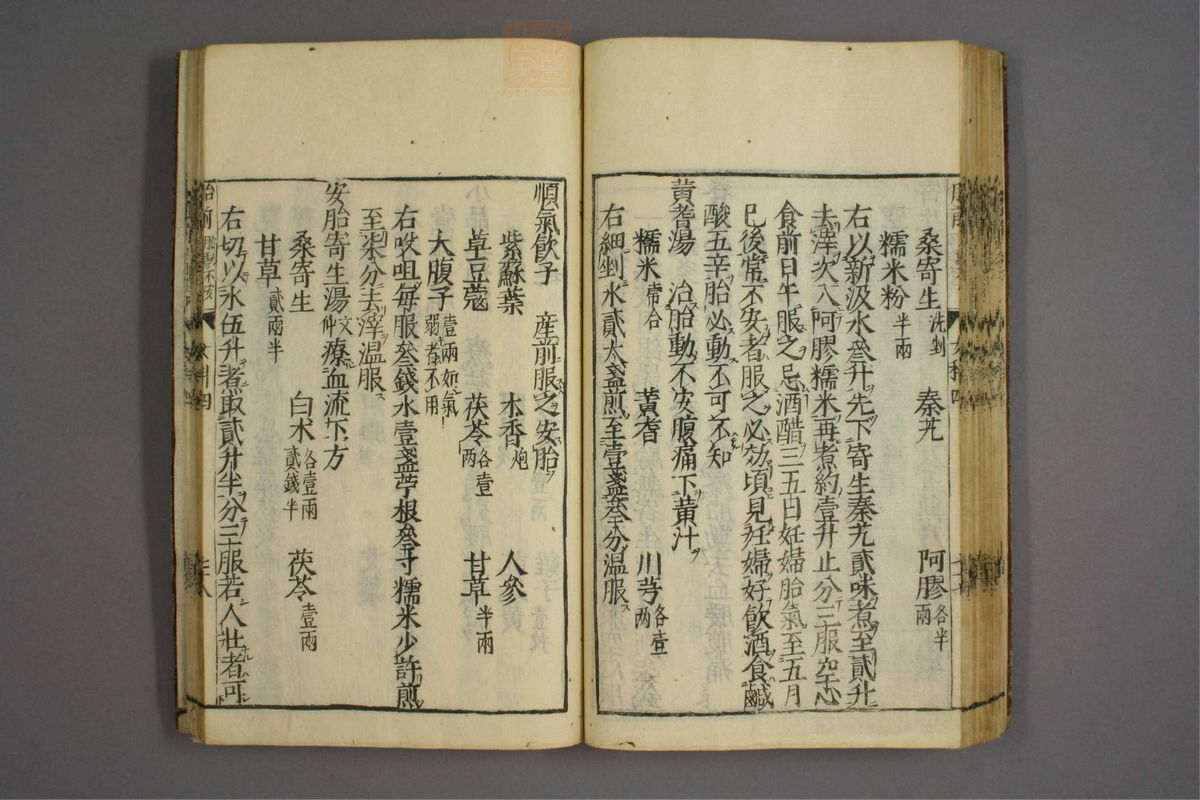 桑寄生洗剉 秦艽 阿膠各半兩
糯米粉半兩
右以新汲水叄升先下寄生秦艽貳味煮至貳升
去滓次入阿膠糯米再煮約壹升止分三服空心
食前日午服之忌酒醋三五日妊婦胎氣至五月
已後常不安者服之必効頃見妊婦好飲酒食鹹
酸五辛胎必動不可不知
黃耆湯 治胎動不安腹痛下黃汁
糯米壹合 黃耆 川芎各壹兩
右細剉水貳大盞煎至壹盞叄分温服
順氣飲子 産前服之安胎
紫蘇葉 木香炮 人參
草豆蔻 茯苓各壹兩 甘草半兩
大腹子壹兩如氣弱者不用
右㕮咀每服叄錢水壹盞苧根叄寸糯米少許煎
至柒分去滓温服
安胎寄生湯文仲療血流下方
桑寄生 白朮各壹兩貳錢半 茯苓壹兩
甘草貳兩半
右切以水伍升煮取貳升半分三服若人壯者可